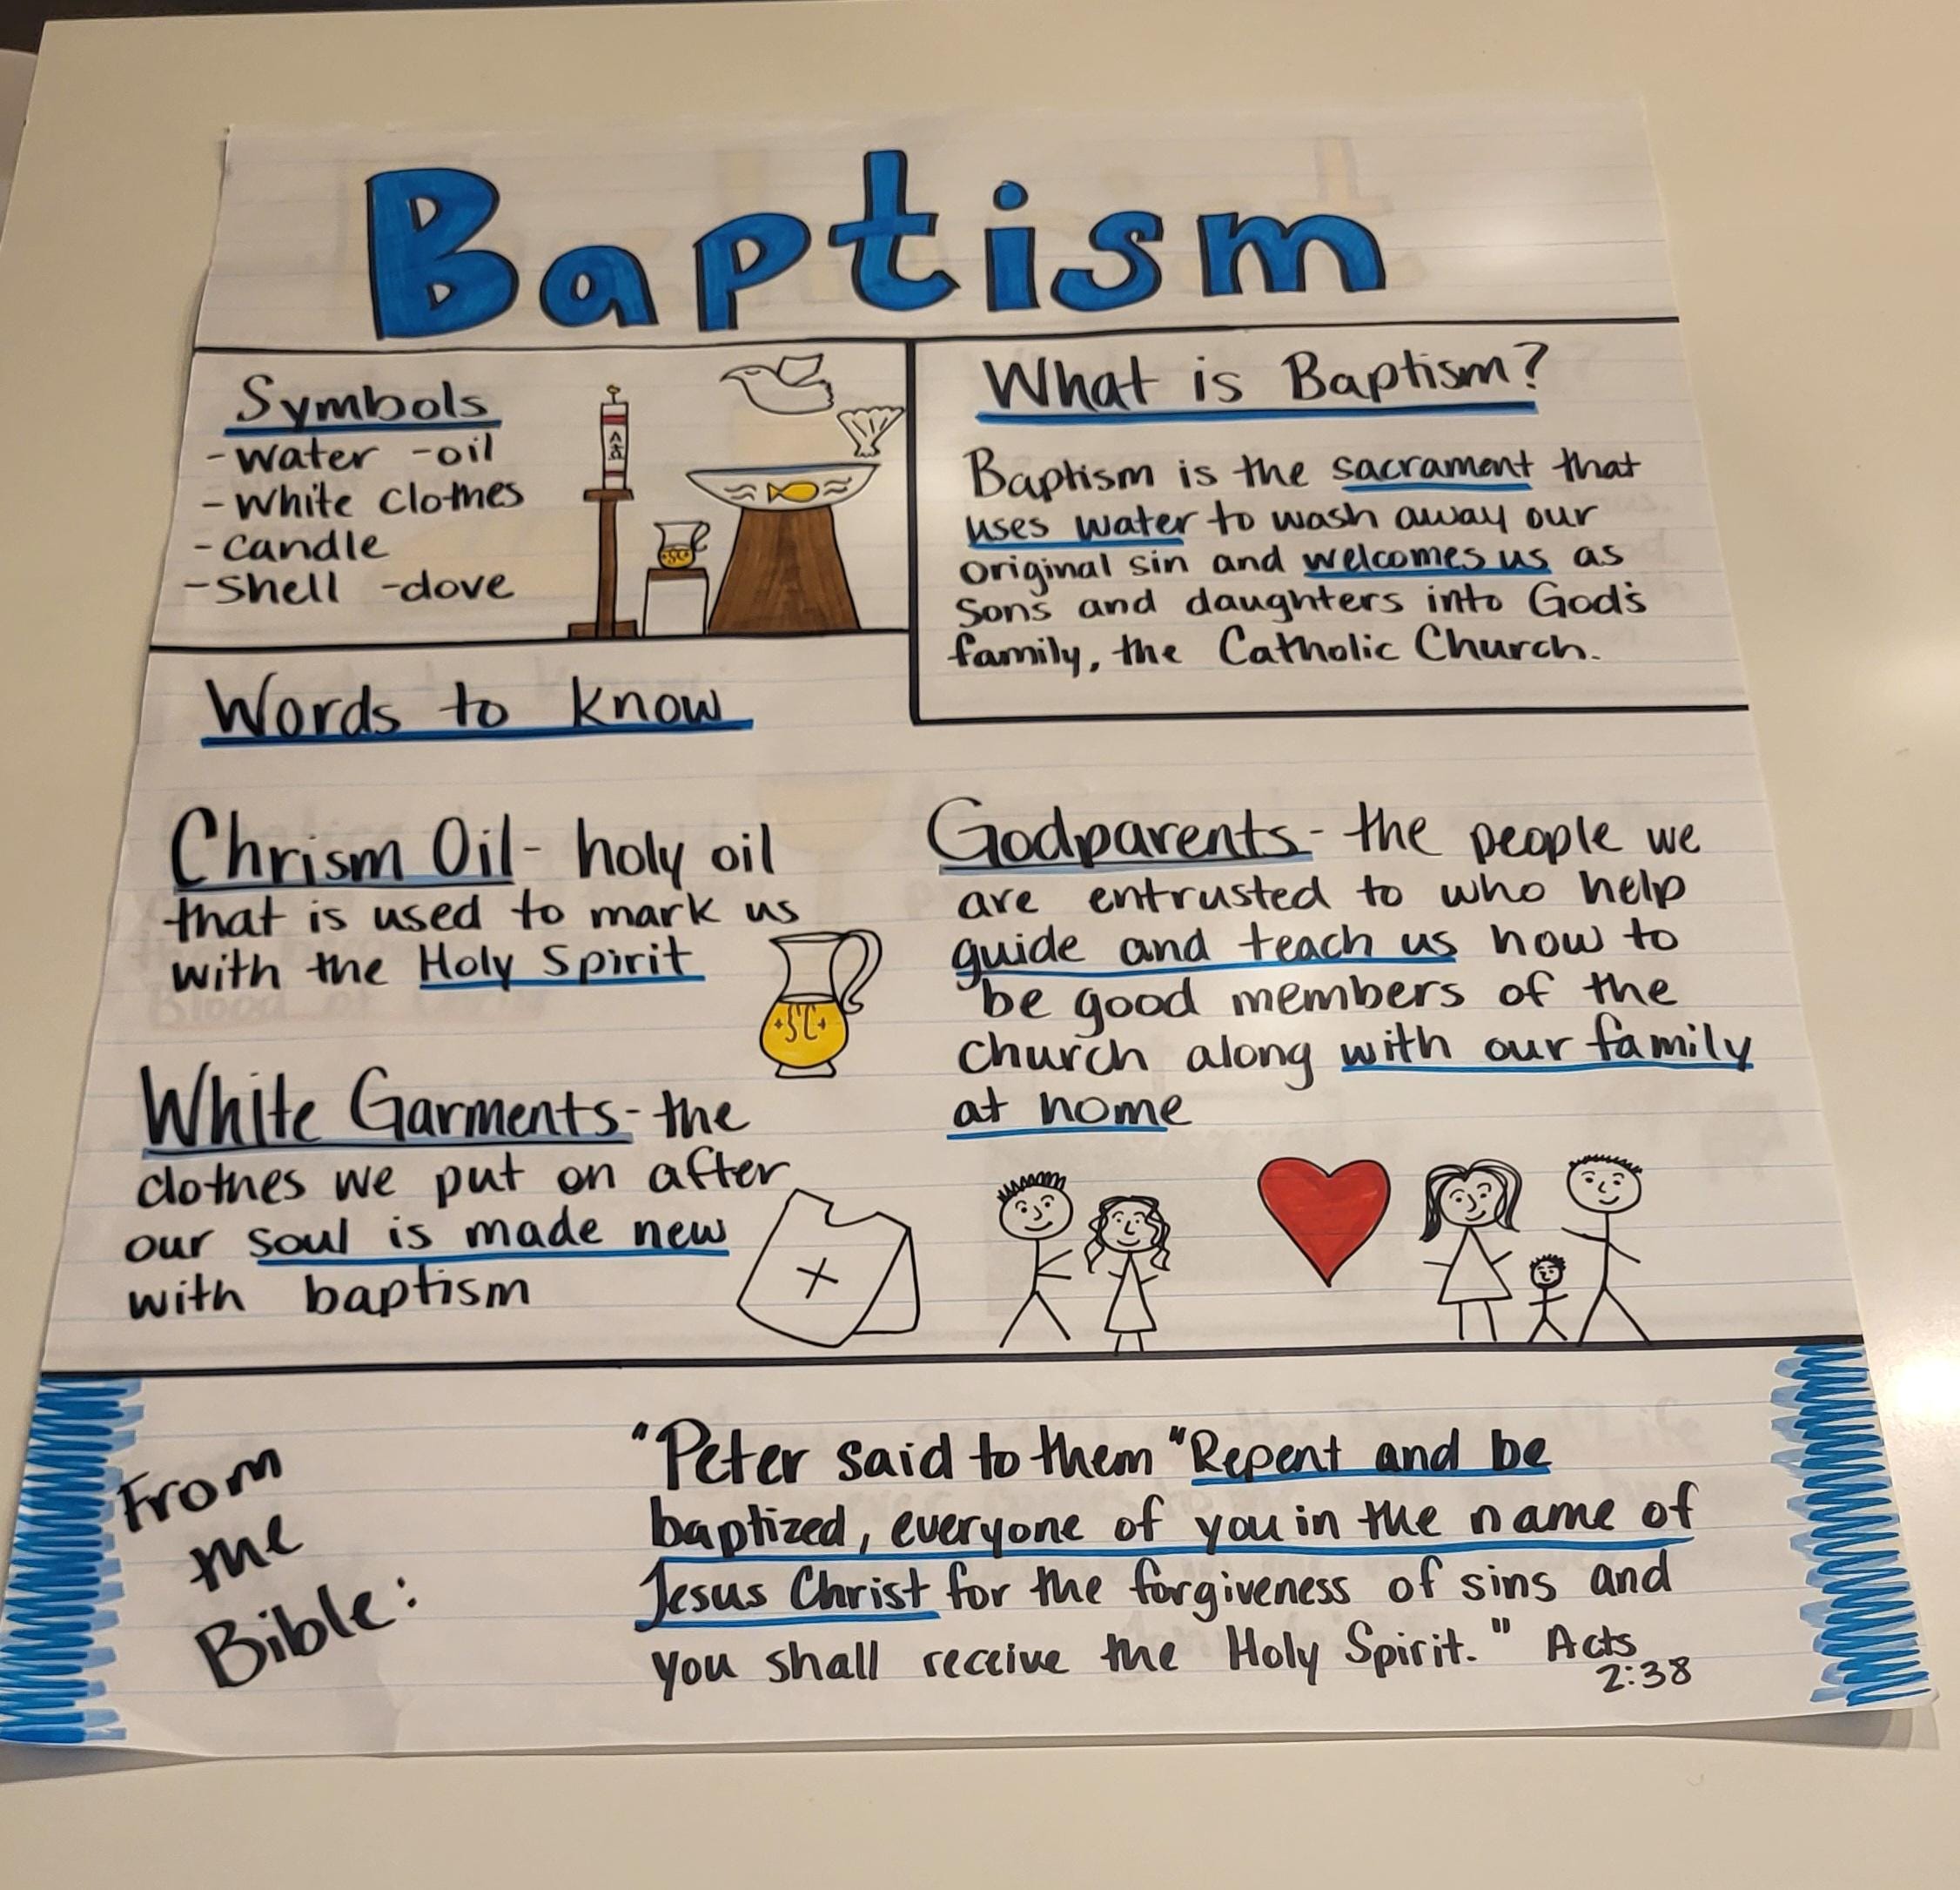 Baptism
Symbols
- water - oil
- white clothes
- candle
- shell - dove
What is Baptism?
Baptism is the sacrament that
uses water to wash away our
original sin and welcomes us as
sons and daughters into God's
family, the Catholic Church.
Words to know
Chrism Oil - holy oil
that is used to mark us
with the Holy Spirit
SC
White Garments - the
clothes we put on after
our soul is made new
with baptism
Godparents - the people we
are entrusted to who help
guide and teach us how to
be good members of the
church along with our family
at home
From
the
Bible:
"Peter said to them "Repent and be
baptized, everyone of you in the name of
Jesus Christ for the forgiveness of sins and
you shall receive the Holy Spirit." Acts
2:38